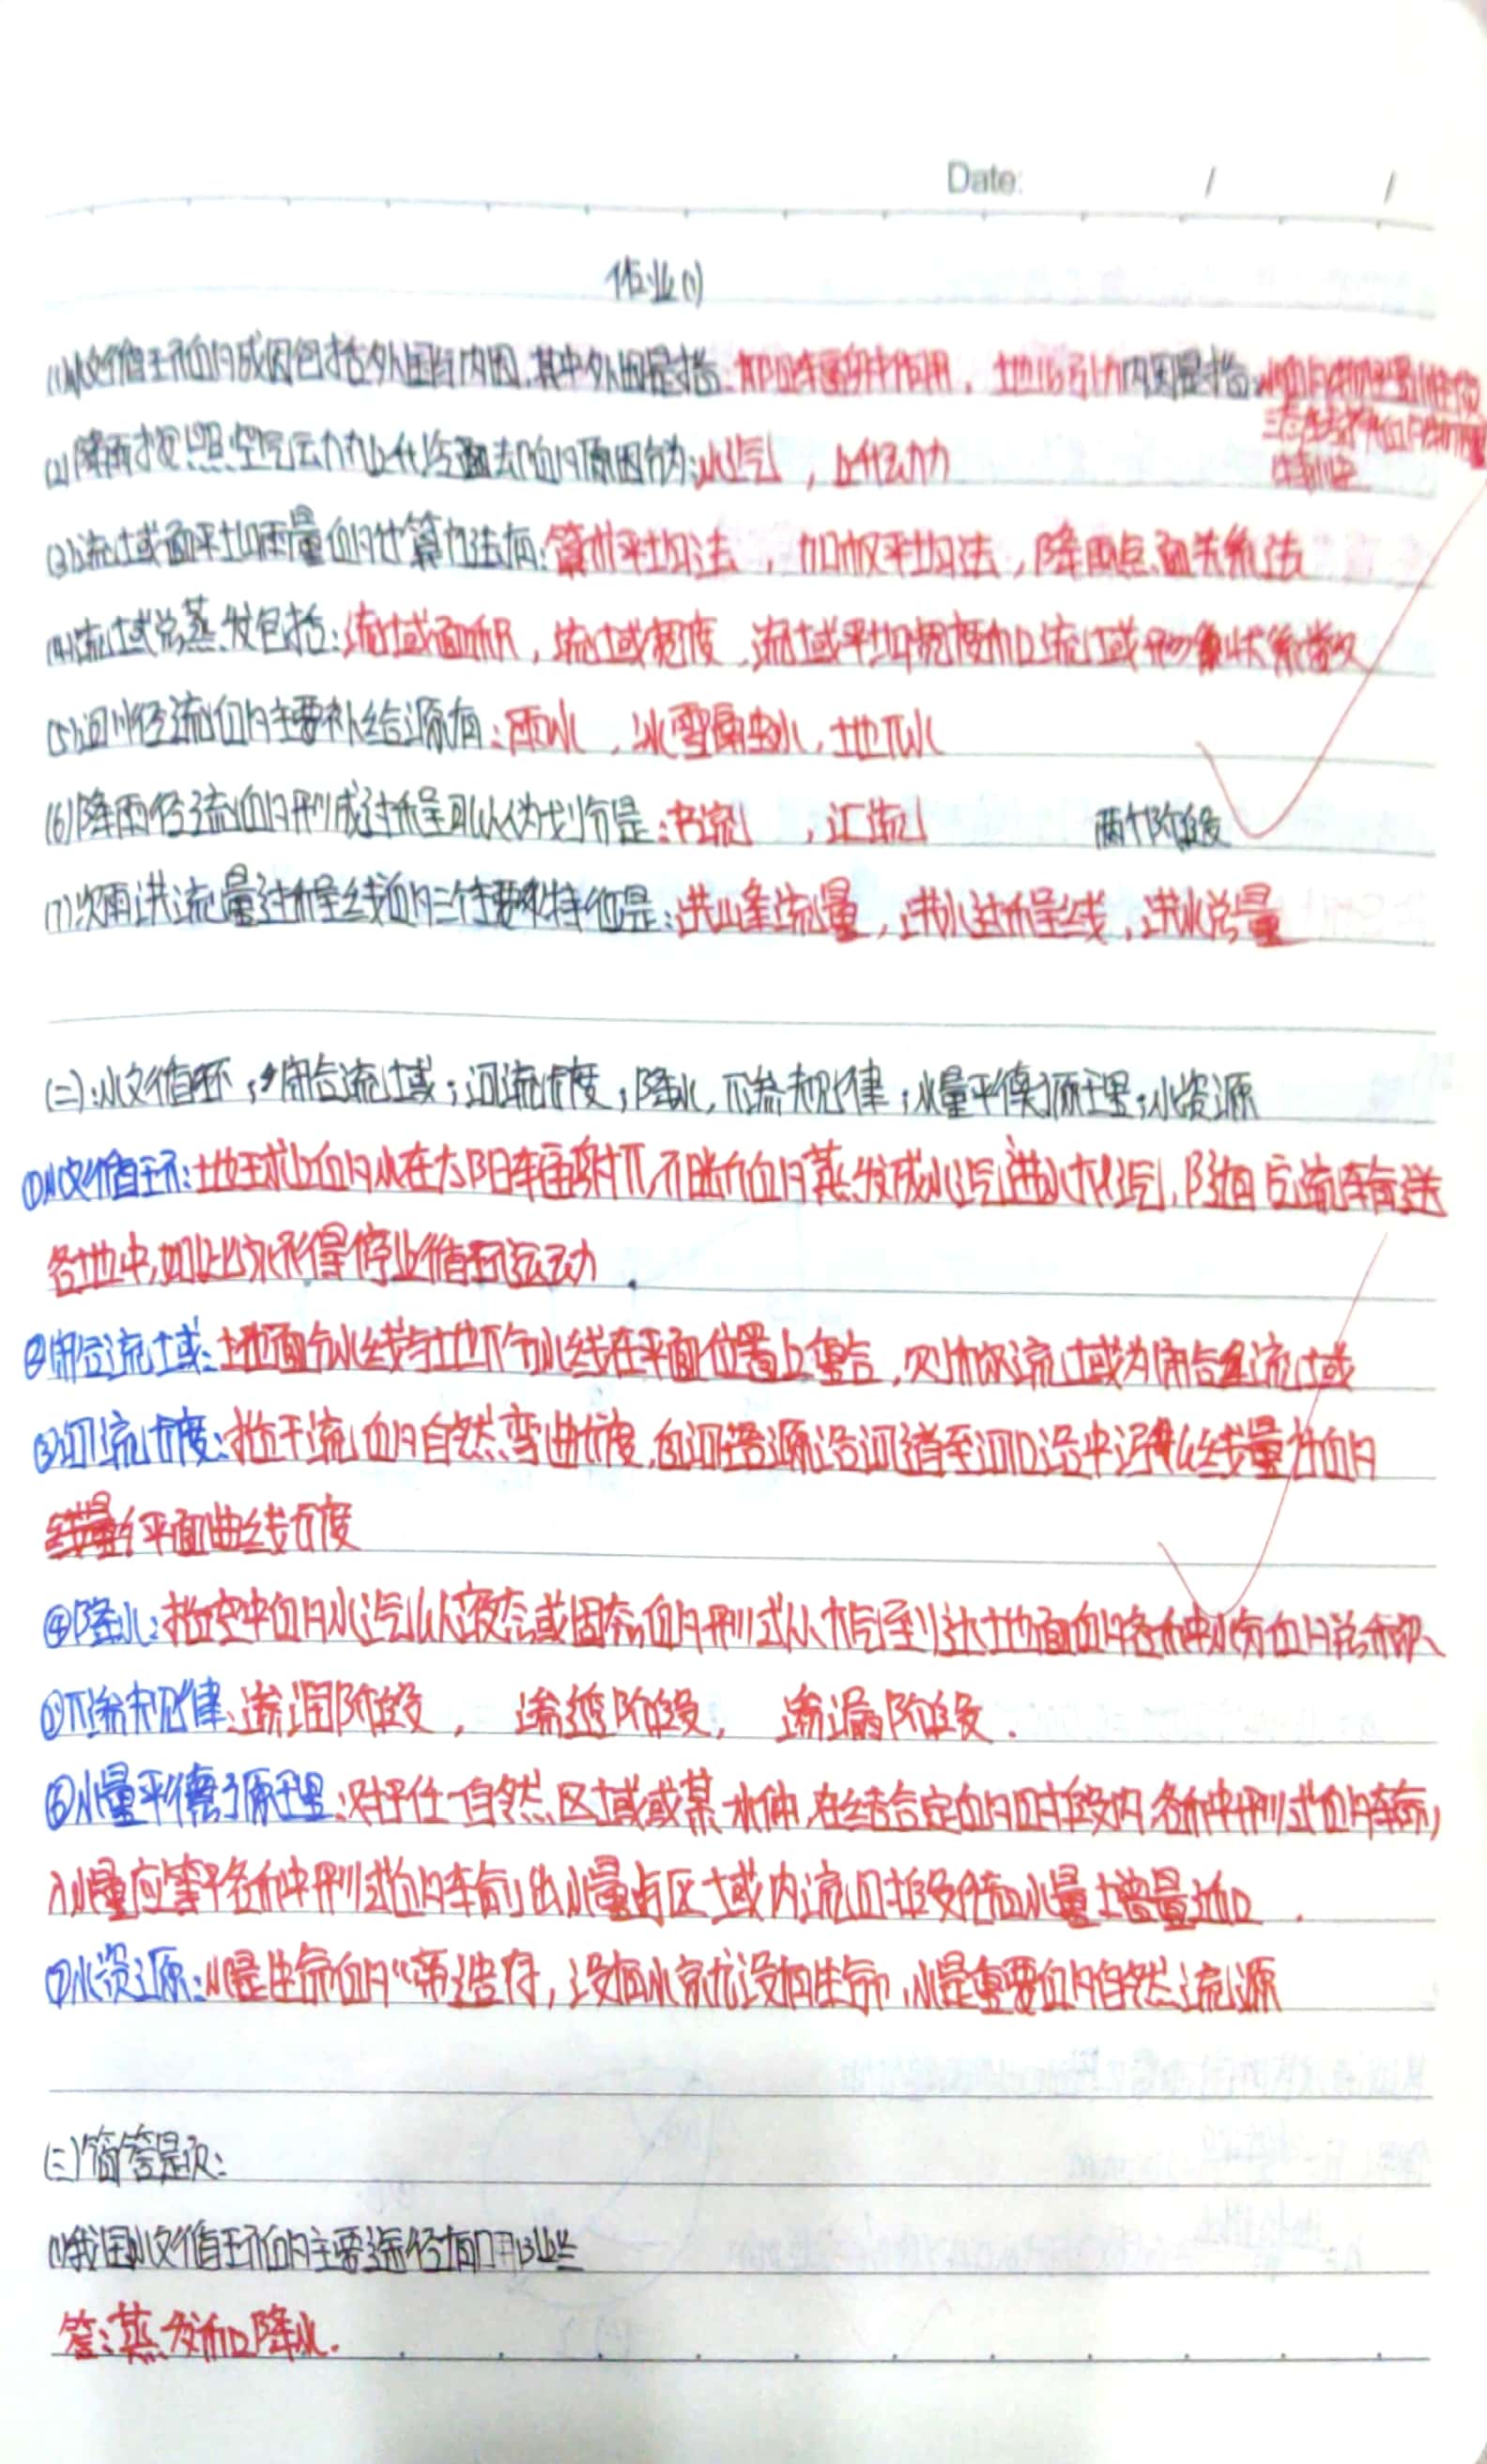 Date: / /
作业(1)
(1)水文循环的成因包括外因与内因,其中外因是指:太阳辐射作用,地心引力内因是指:水的物理性质
三态转换
(2)降雨按照空气动力上升冷却的原因分为:水汽,上升动力
(3)流域面平均雨量的计算方法有:算术平均法,加权平均法,降雨点面关系法
(4)流域总蒸发包括:流域面积,流域宽度,流域平均宽度和流域形状系数
(5)河川径流的主要补给源有:雨水,冰雪融水,地下水
(6)降雨径流的形成过程可以划分是:产流,汇流 两个阶段
(7)次雨洪流量过程线的三个主要特征是:洪峰流量,洪水过程线,洪水总量
(二):水文循环;闭合流域;河流长度;降水,下渗规律;水量平衡原理;水资源
①水文循环:地球上的水在太阳辐射下,不断的蒸发成水汽进入大汽,随后流输送
各地中,如此永不停止循环运动
②闭合流域:地面分水线与地下分水线在平面位置上重合,则称流域为闭合流域
③河流长度:指干流的自然弯曲长度,自河源沿河道至河口沿中泓线量出的
平面曲线长度
④降水:指空中的水汽以液态或固态的形式从大气到达地面的各种水分的总称
⑤下渗规律:渗润阶段, 渗透阶段, 渗漏阶段.
⑥水量平衡原理:对于任一自然区域或某一水体,在给定的时段内,各种形式的输
入水量应等于各种形式的输出水量与区域内流时段储水量增量
⑦水资源:水是生命的,没有水就没有生命,水是重要的自然流源
(三)简答题:
(1)我国水文循环的主要途径有哪些
答:蒸发和降水.